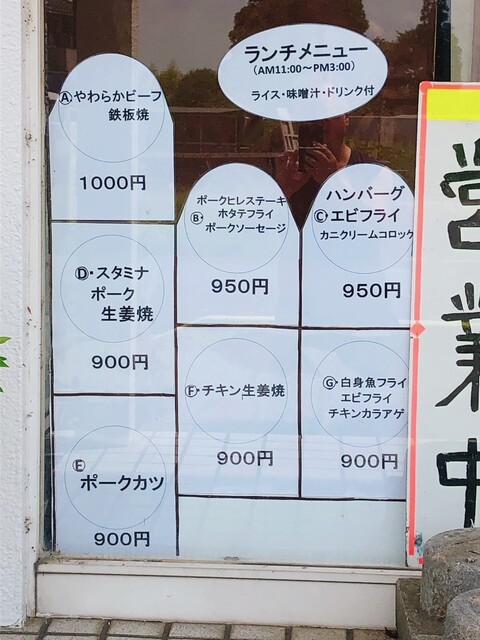 ランチメニュー
(AM11:00～PM3:00)
ライス・味噌汁・ドリンク付
Ⓐやわらかビーフ
鉄板焼
1000円
ポークヒレステーキ
Ⓑ・ホタテフライ
ポークソーセージ
950円
ハンバーグ
Ⓒ・エビフライ
カニクリームコロッケ
950円
Ⓓ・スタミナ
ポーク
生姜焼
900円
Ⓔ
ポークカツ
900円
Ⓕ・チキン生姜焼
900円
Ⓖ・白身魚フライ
エビフライ
チキンカラアゲ
900円
営業中